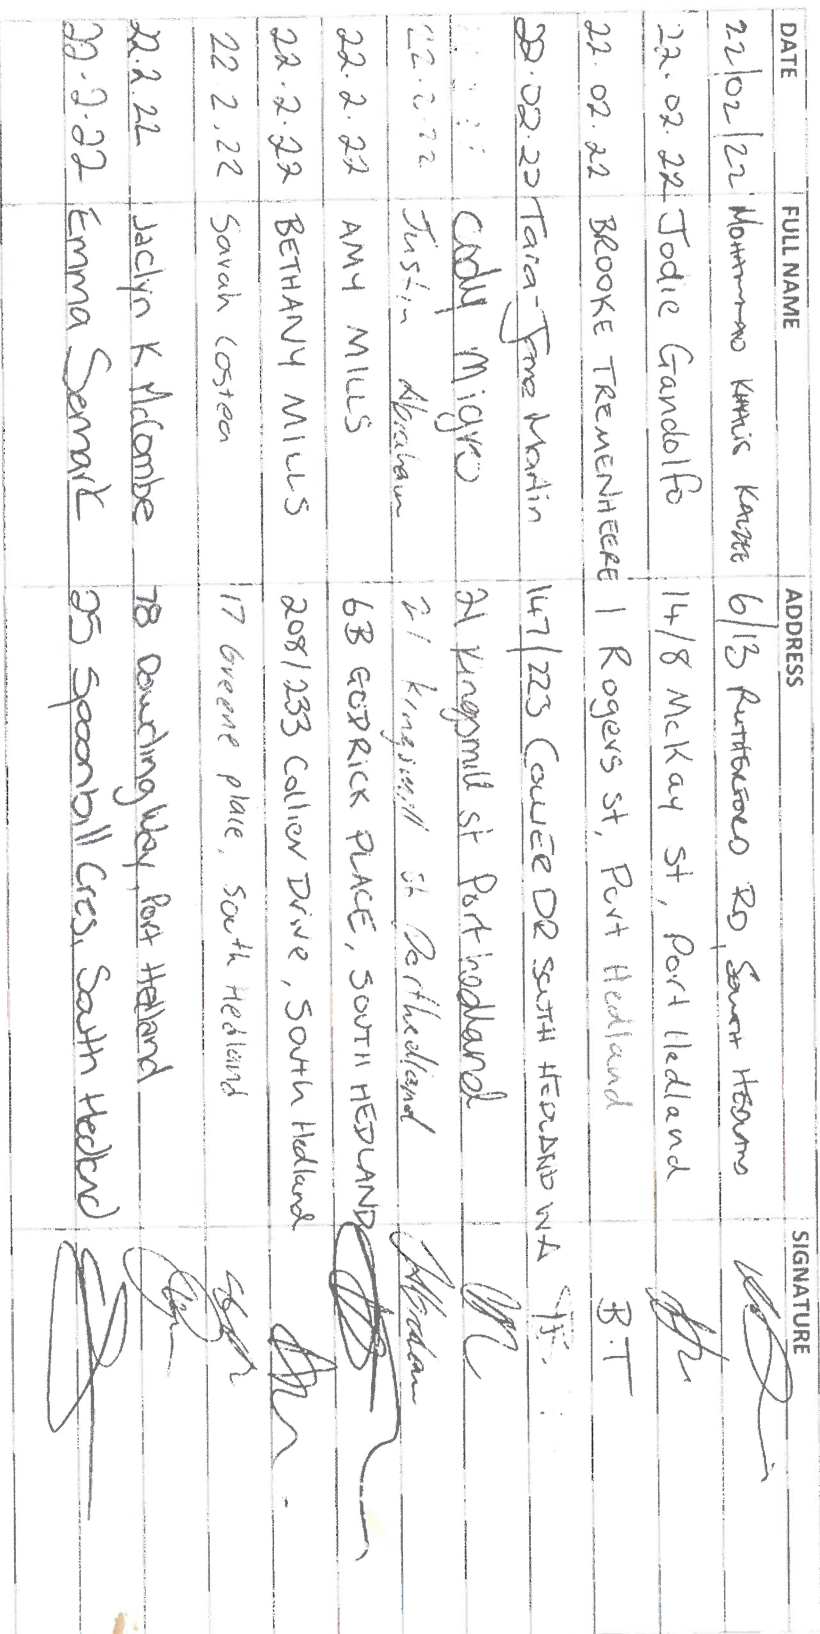 DATE FULL NAME ADDRESS SIGNATURE
22/02/22 MOHAMMAD KHALIS 6/13 RUTHERFORD RD, SOUTH HEDLAND
22.02.22 Jodie Gandolfo 14/8 McKay St, Port Hedland
22.02.22 BROOKE TREMENHEERE 1 Rogers St, Port Hedland B.T
22.02.22 Tara-Jane Martin 147/223 COWER DR SOUTH HEDLAND WA
Cindy Migro 21 Kingsmill st Port hedland
22.2.22 Justin Abraham 21 kingsmill st Porthedland
22.2.22 AMY MILLS 6B GODRICK PLACE, SOUTH HEDLAND
22.2.22 BETHANY MILLS 208/233 Collier Drive, South Hedland
22.2.22 Sarah Costen 17 Greene place, South Hedland
22.2.22 Jaclyn K McCombe 78 Dowding Way, Port Hedland
22.2.22 Emma Semark 25 Spoonbill Cres, South Hedland